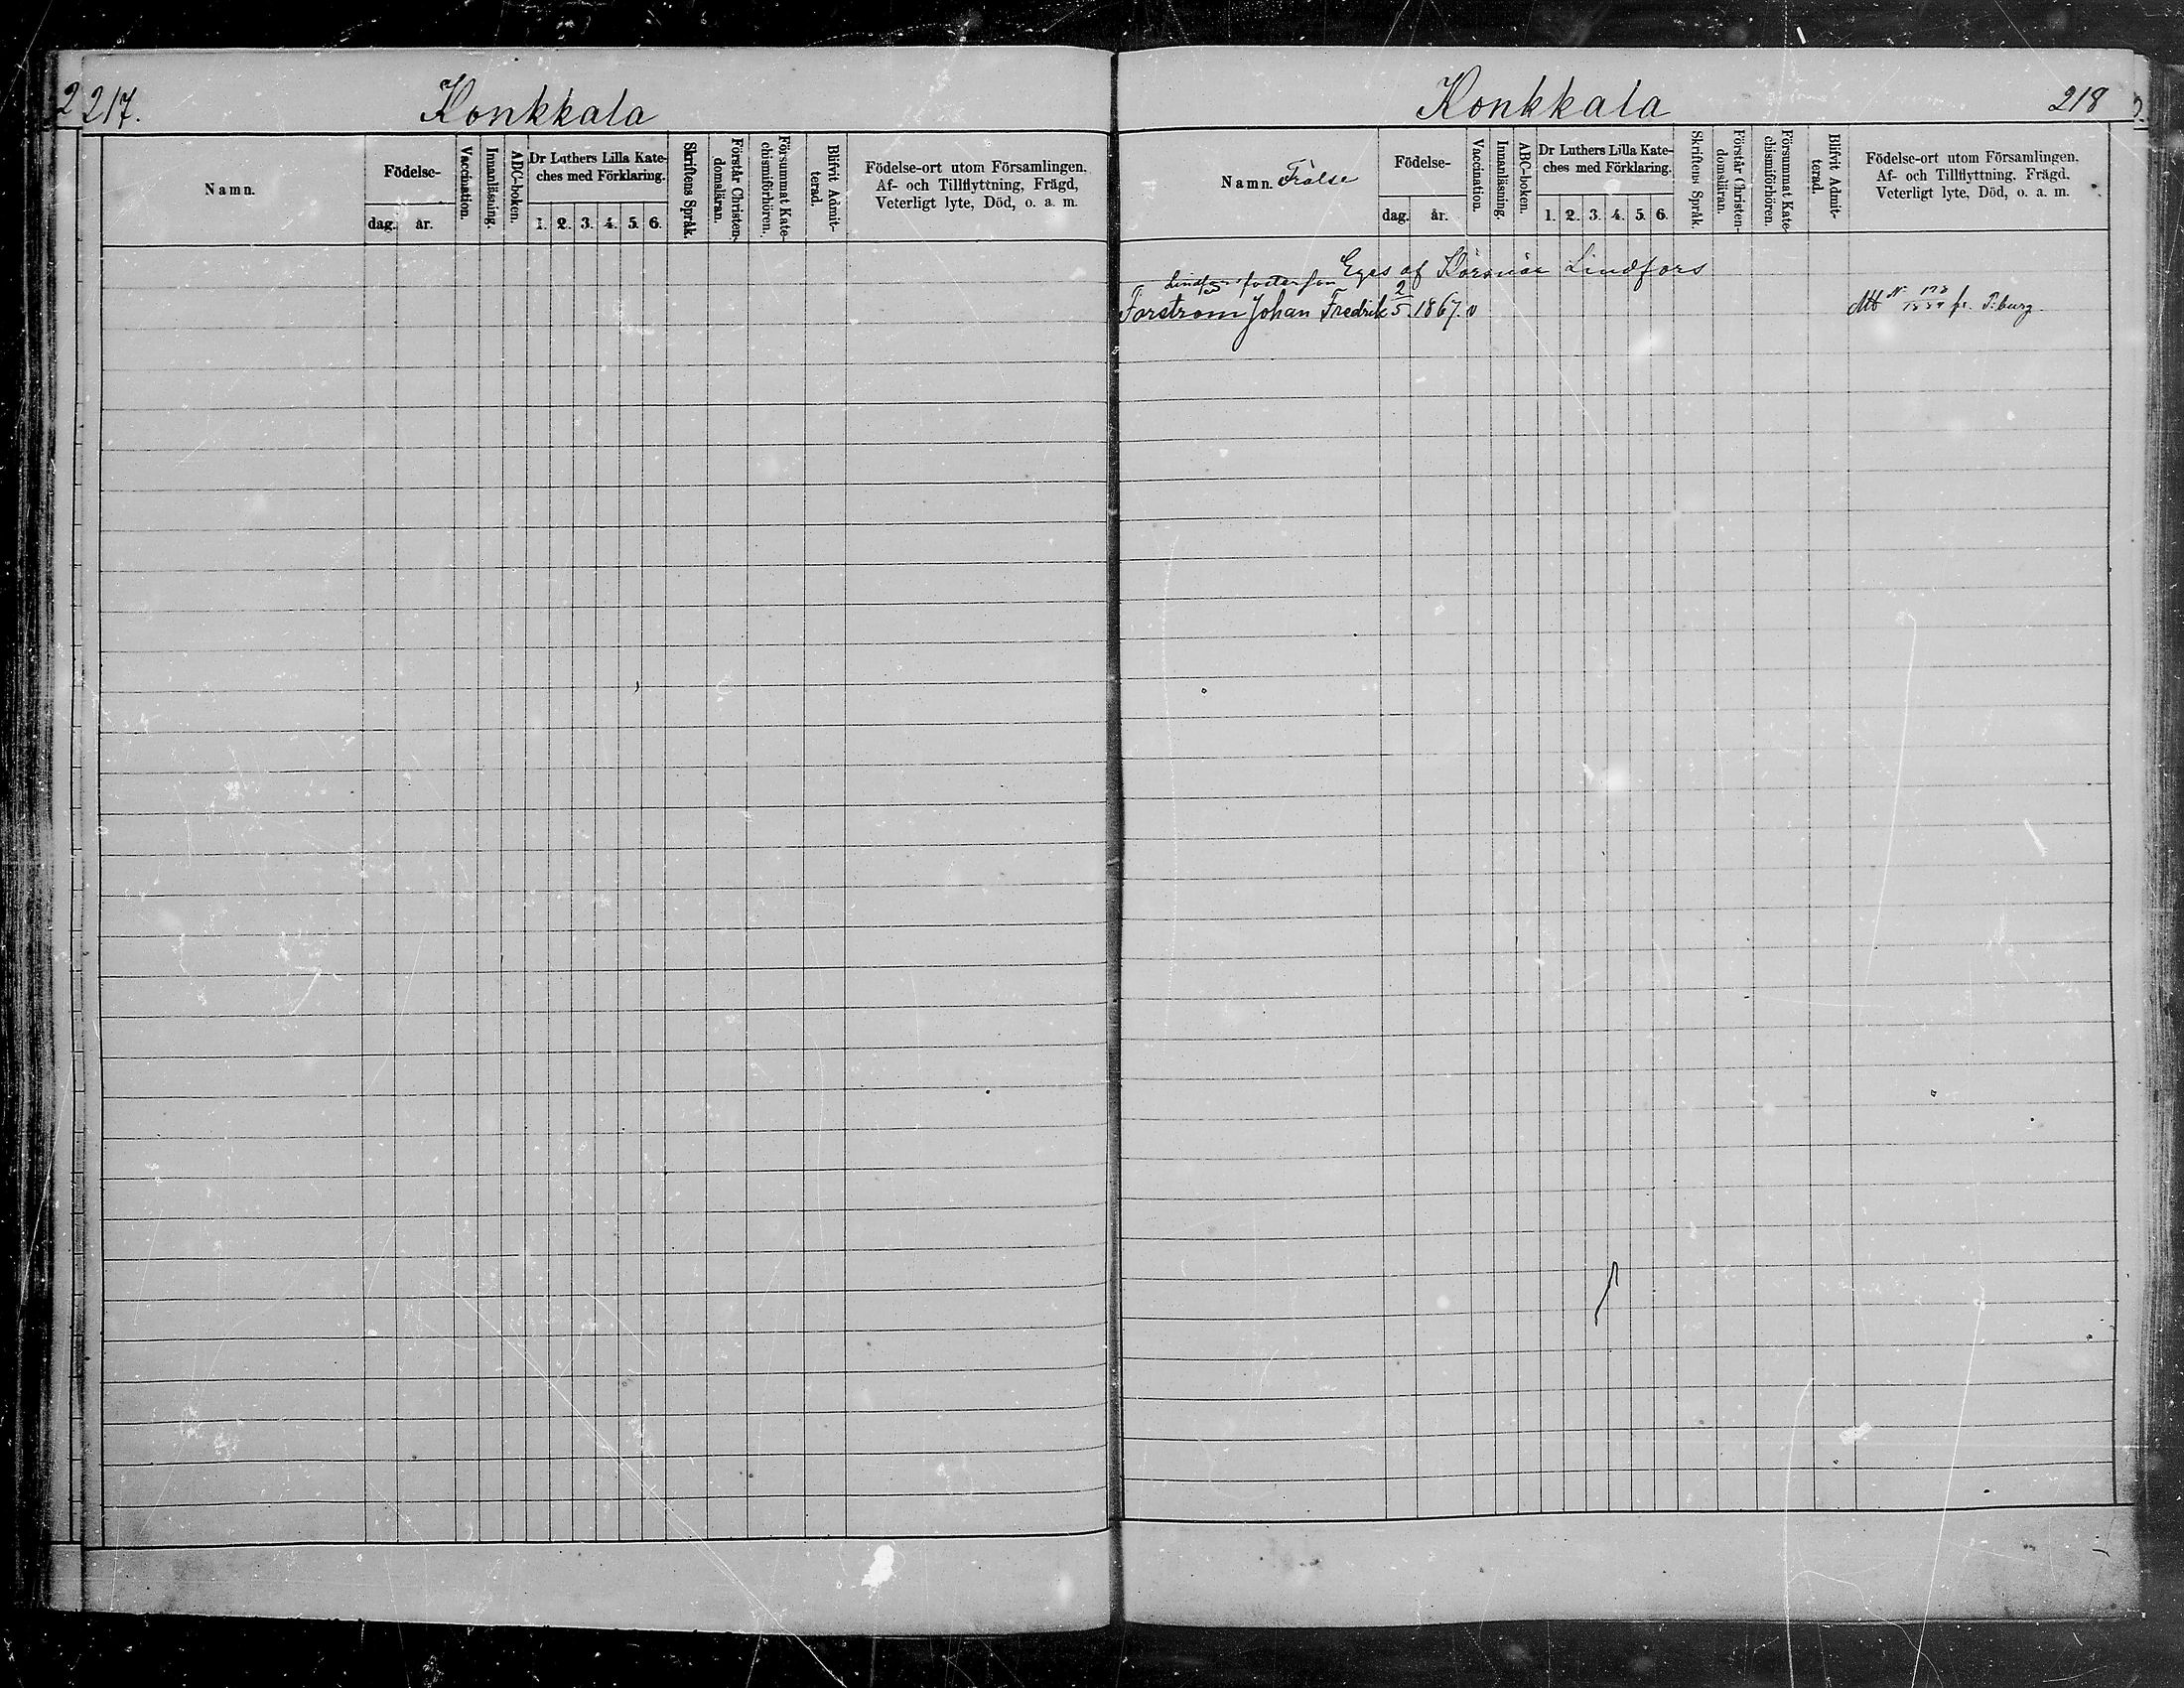 2 217.
Konkkala
Namn.
Födelse-
dag. år.
Vaccination.
Innanläsning.
ABC-boken.
Dr Luthers Lilla Kate-
ches med Förklaring.
1. 2. 3. 4. 5. 6.
Skriftens Språk.
Förstår Christen-
domsläran.
Försummat Kate-
chismiförhören.
Blifvit Admit-
terad.
Födelse-ort utom Församlingen.
Af- och Tillflyttning, Frägd,
Veterligt lyte, Död, o. a. m.
Konkkala
218
Namn. Frälse
Födelse-
dag. år.
Vaccination.
Innanläsning.
ABC-boken.
Dr Luthers Lilla Kate-
ches med Förklaring.
1. 2. 3. 4. 5. 6.
Skriftens Språk.
Förstår Christen-
domsläran.
Försummat Kate-
chismiförhören.
Blifvit Admit-
terad.
Födelse-ort utom Församlingen.
Af- och Tillflyttning. Frägd.
Veterligt lyte, Död, o. a. m.
Eges af Lindfors
fosterson
Forstrom Johan Fredrik 2/5 1867. v
fr. P:burg.